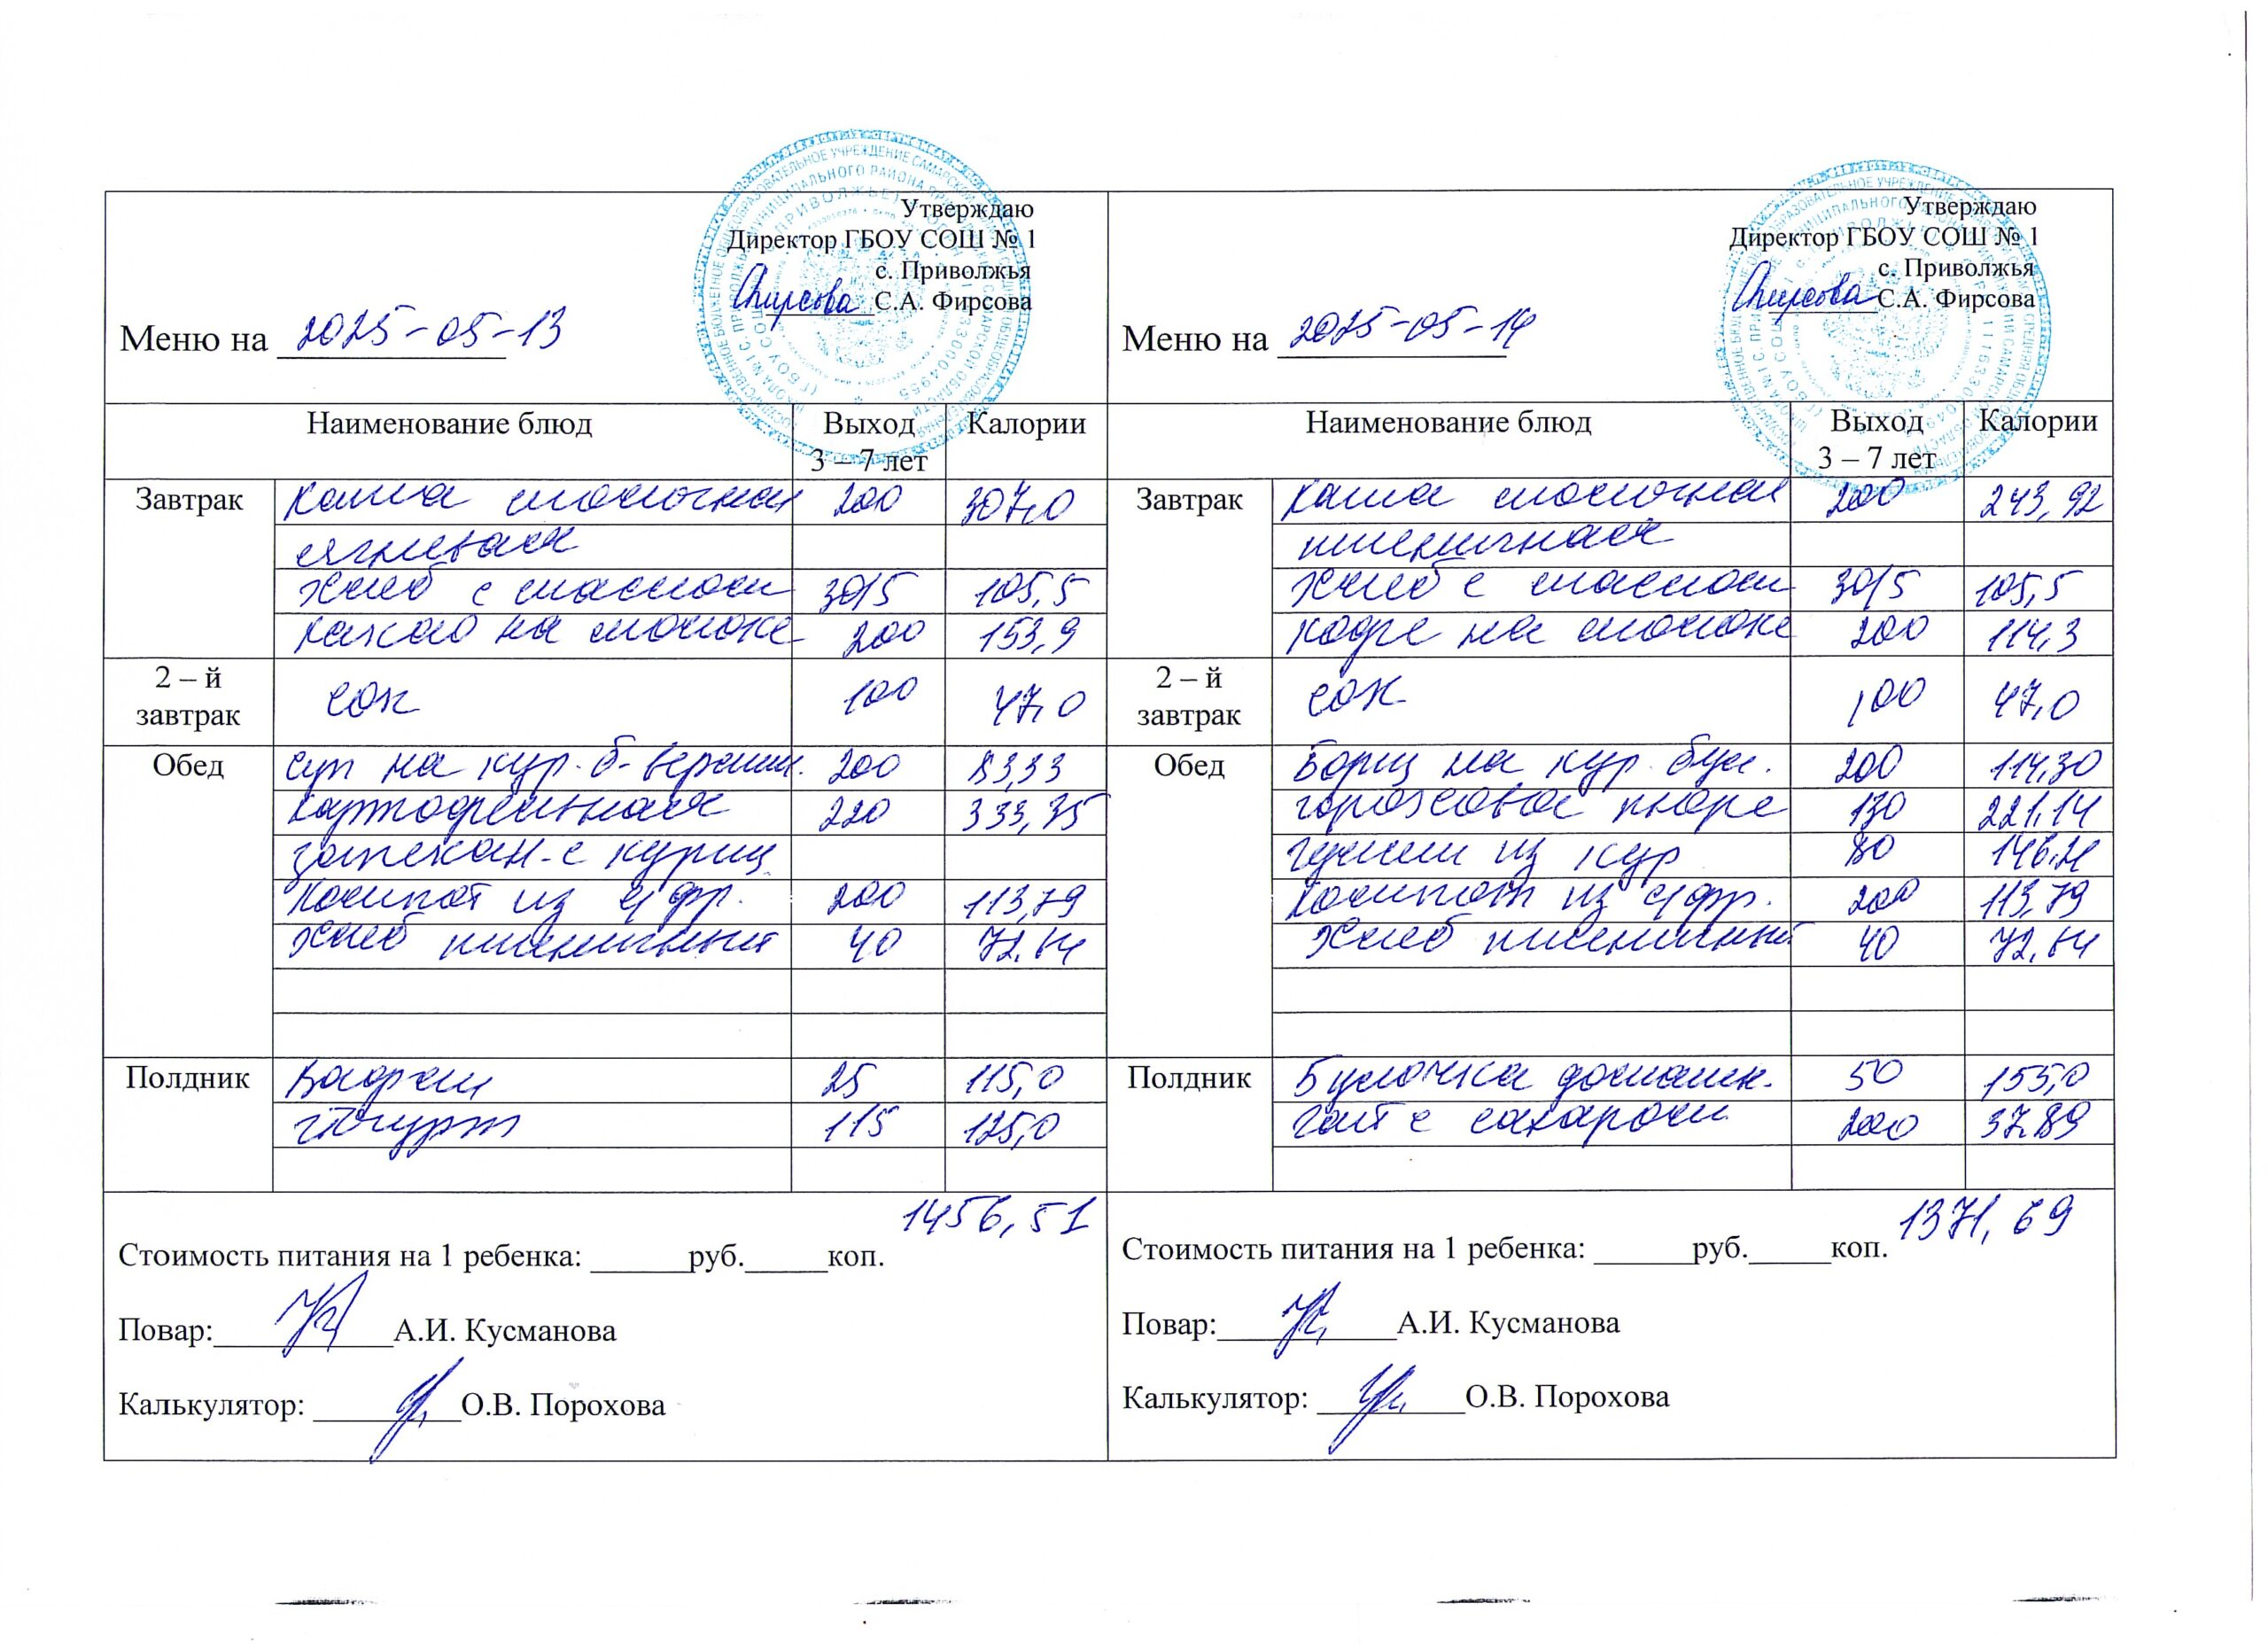 Утверждаю
Директор ГБОУ СОШ № 1
с. Приволжья
С.А. Фирсова
Меню на 2025-05-13
Наименование блюд Выход 3 – 7 лет Калории
Завтрак каша молочная 200 307,0
ячневая
хлеб с маслом 30/5 105,5
какао на молоке 200 153,9
2 – й завтрак сок 100 47,0
Обед суп на кур. б- вермиш. 200 83,33
картофельная 220 333,35
запекан- с куриц
компот из с/фр. 200 113,79
хлеб пшеничный 40 72,64
Полдник Вафли 25 115,0
йогурт 115 125,0
1456,51
Стоимость питания на 1 ребенка: руб. коп.
Повар: А.И. Кусманова
Калькулятор: О.В. Порохова
Утверждаю
Директор ГБОУ СОШ № 1
с. Приволжья
С.А. Фирсова
Меню на 2025-05-14
Наименование блюд Выход 3 – 7 лет Калории
Завтрак каша молочная 200 243,92
пшеничная
хлеб с маслом 30/5 105,5
кофе на молоке 200 114,3
2 – й завтрак сок 100 47,0
Обед Борщ на кур. бул. 200 114,30
гороховое пюре 130 221,14
гуляш из кур 80 146,21
компот из с/фр. 200 113,79
хлеб пшеничный 40 72,64
Полдник Булочка домашн. 50 155,0
чай с сахаром 200 37,89
1371,69
Стоимость питания на 1 ребенка: руб. коп.
Повар: А.И. Кусманова
Калькулятор: О.В. Порохова